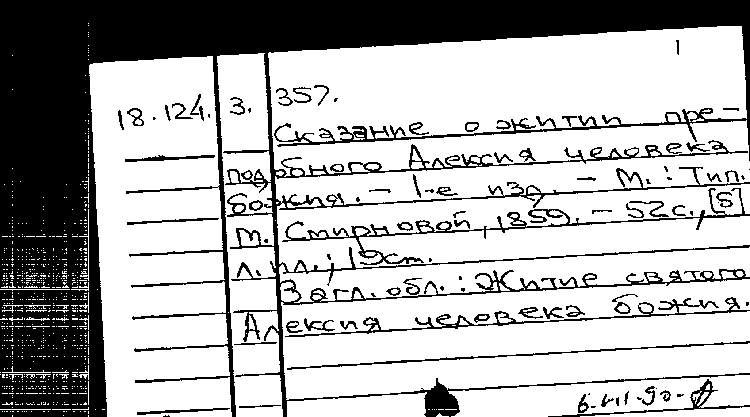 1
18.124. 3. 357.
Сказание о житии пре-
подобного Алексия человека
божия. - 1-е изд. - М.: Тип.
М. Смирновой, 1859. - 52с., [5]
л. ил.; 19см.
Загл. обл.: Житие святого
Алексия человека божия.
6.VII.90.